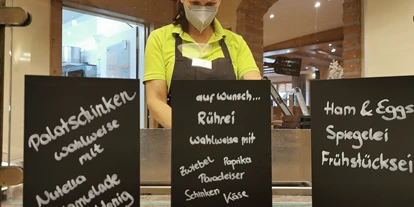 Palatschinken
wahlweise
mit
Nutella
auf Wunsch...
Rührei
Wahlweise mit
Zwiebel Paprika
Paradeiser
Schinken Käse
Ham & Eggs
Spiegelei
Frühstücksei